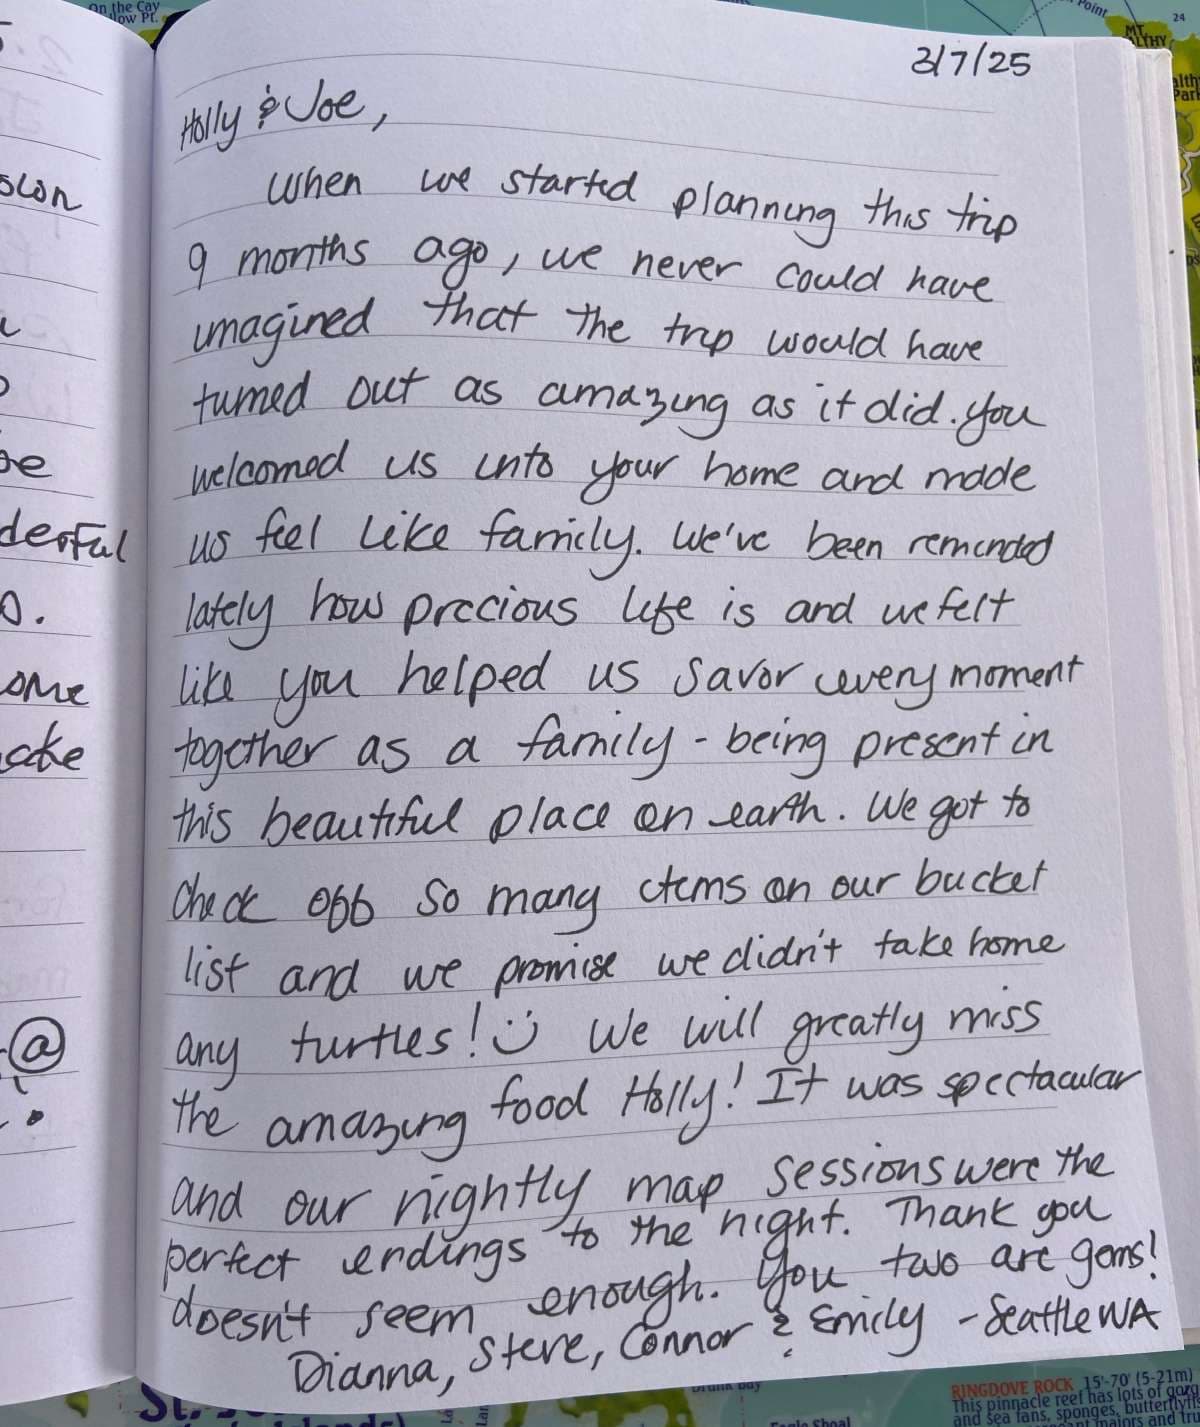 On the Cay
llow Pt.
Point
24
MT
ALTHY
3/7/25
Holly & Joe,
When we started planning this trip
9 months ago, we never could have
imagined that the trip would have
turned out as amazing as it did. You
welcomed us into your home and made
us feel like family. We've been reminded
lately how precious life is and we felt
like you helped us savor every moment
together as a family - being present in
this beautiful place on earth. We got to
check off so many items on our bucket
list and we promise we didn't take home
any turtles! :) We will greatly miss
the amazing food Holly! It was spectacular
and our nightly map sessions were the
perfect endings to the night. Thank you
doesn't seem enough. You two are gems!
Dianna, Steve, Connor & Emily - Seattle WA
own
be
derful
ome
ake
@
St.
RINGDOVE ROCK 15'-70' (5-21m)
This pinnacle reef has lots of gorg
and sea fans, sponges, butterflyfi
Eagle Shoal